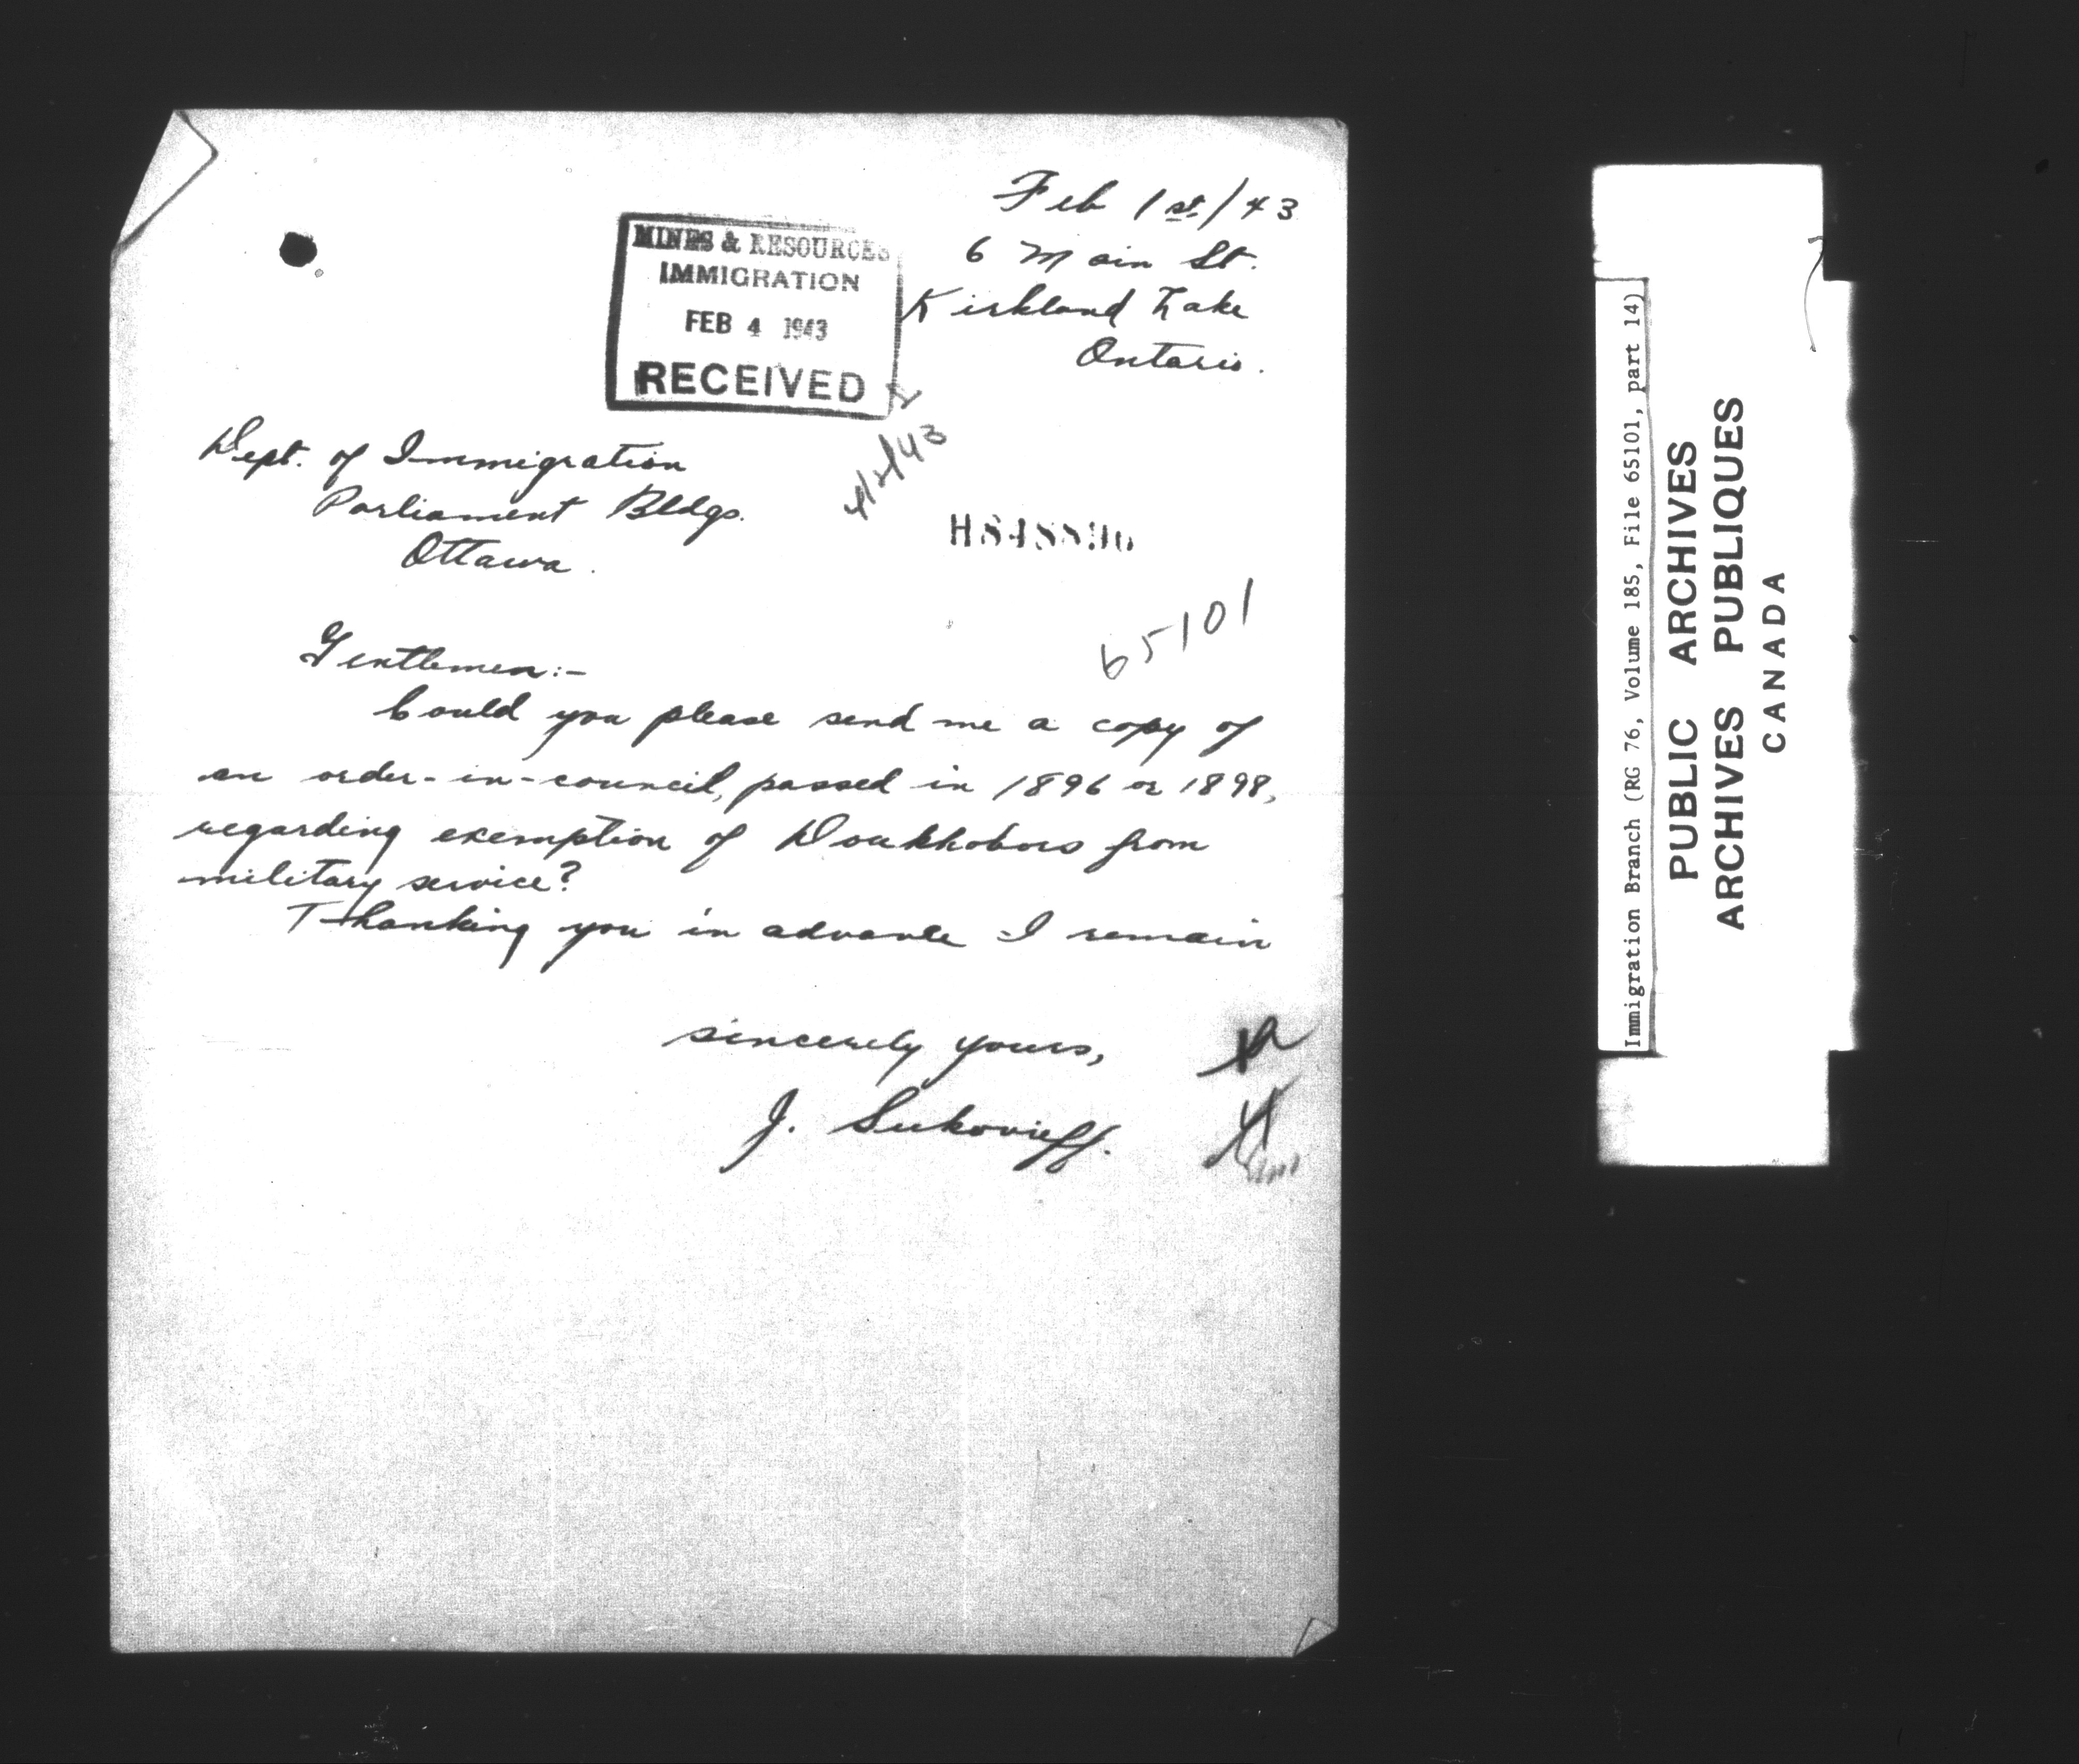 Feb 1st/43
6 Main St.
Kirkland Lake
Ontario.
MINES & RESOURCES
IMMIGRATION
FEB 4 1943
RECEIVED
4/2/43
Dept. of Immigration
Parliament Bldgs.
Ottawa.
65101
Gentlemen:-
Could you please send me a copy of
an order-in-council, passed in 1896 or 1898,
regarding exemption of Doukhobors from
military service?
Thanking you in advance I remain
sincerely yours,
J. Sukovieff.
Immigration Branch (RG 76, Volume 185, File 65101, part 14)
PUBLIC ARCHIVES
ARCHIVES PUBLIQUES
CANADA